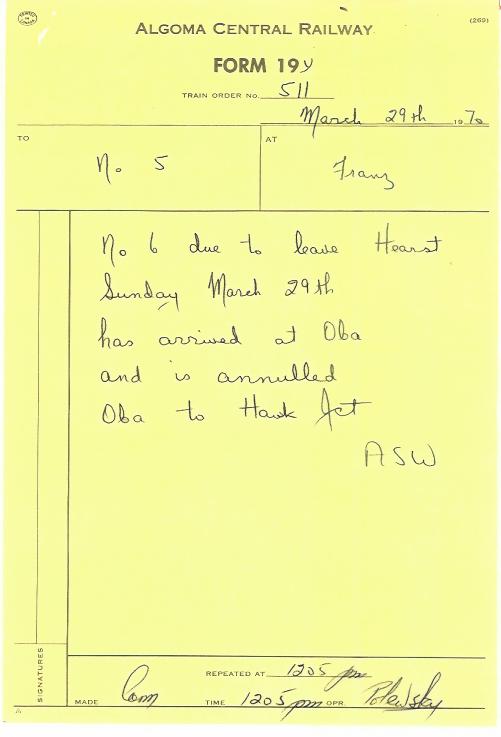 (269)
ALGOMA CENTRAL RAILWAY
FORM 19y
TRAIN ORDER NO. 511
March 29th 1970
TO
No 5
AT
Franz
No 6 due to leave Hearst
Sunday March 29th
has arrived at Oba
and is annulled
Oba to Hawk Jct
ASW
SIGNATURES
REPEATED AT 1205 pm
MADE Com TIME 1205 pm OPR. Polewsky